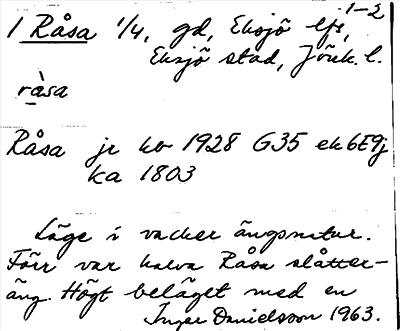 1-2
1 Råsa 1/4, gd, Eksjö lfs,
Eksjö stad, Jönk. l.
ràsa
Råsa jr ko 1928 G35 ek6E9j
ka 1803
Läge i vacker ängsnatur.
Förr var halva Råsa slåtter-
äng. Högt beläget med en
Inger Danielsson 1963.